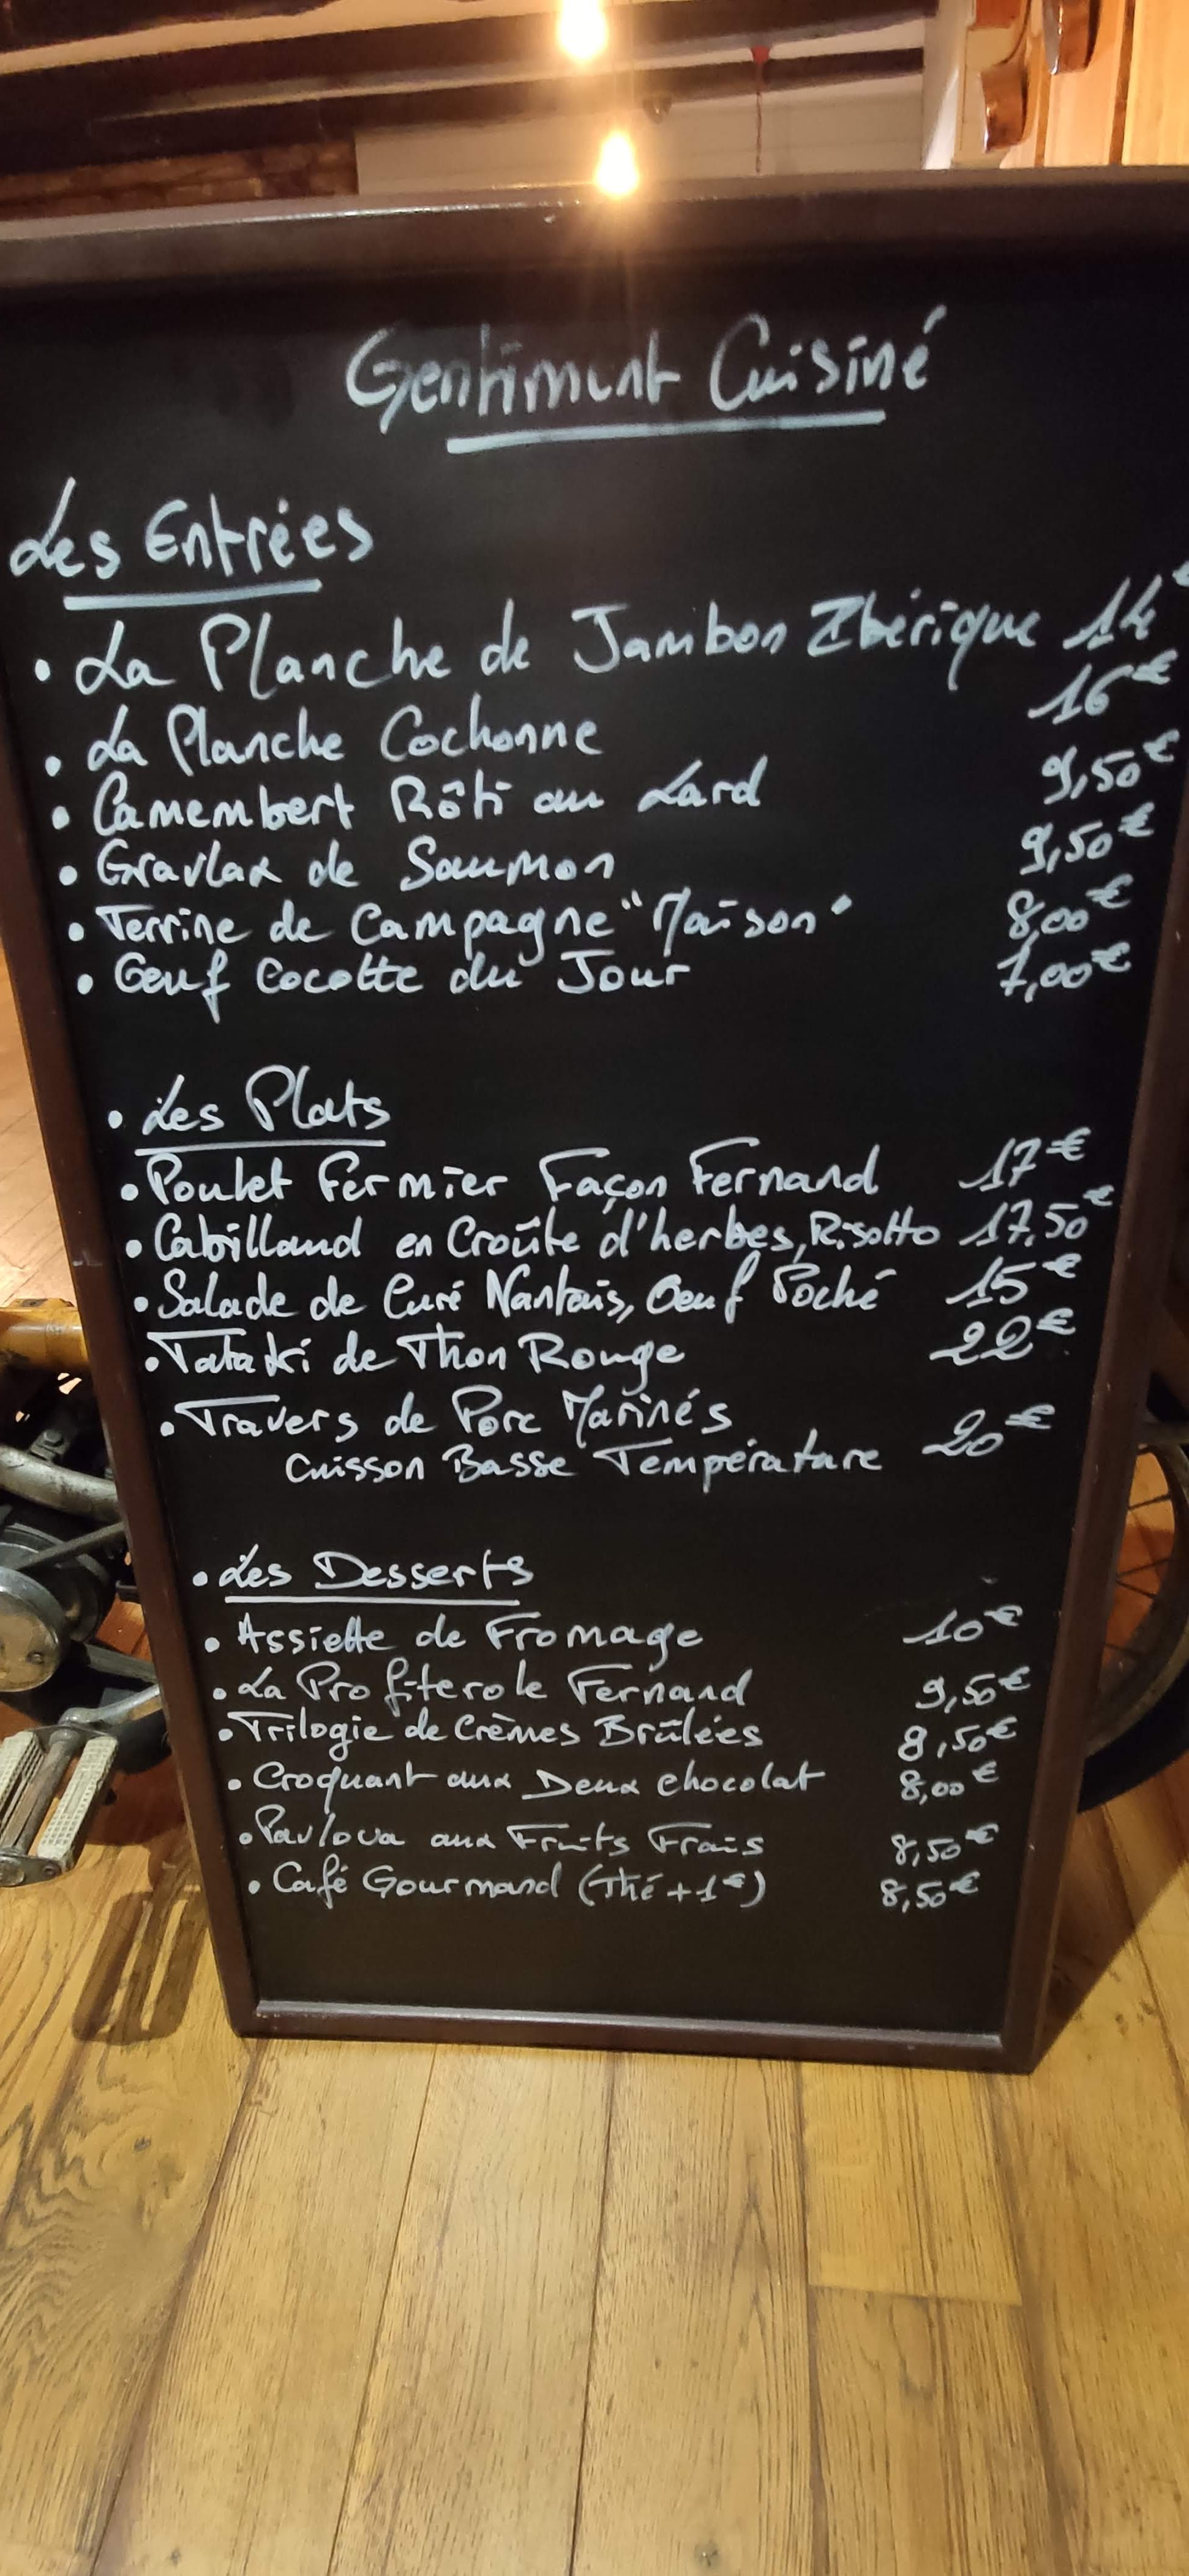 Gentiment Cuisiné
Les Entrées
• La Planche de Jambon Ibérique 14€
• La Planche Cochonne 16€
• Camembert Rôti au Lard 9,50€
• Gravlax de Saumon 9,50€
• Terrine de Campagne "Maison" 8,00€
• Oeuf Cocotte du Jour 7,00€
• Les Plats
• Poulet Fermier Façon Fernand 17€
• Cabillaud en Croûte d'herbes, Risotto 17,50€
• Salade de Curé Nantais, Oeuf Poché 15€
• Tataki de Thon Rouge 22€
• Travers de Porc Marinés
Cuisson Basse Température 20€
• Les Desserts
• Assiette de Fromage 10€
• La Profiterole Fernand 9,50€
• Trilogie de Crèmes Brûlées 8,50€
• Croquant aux Deux chocolat 8,00€
• Pavlova aux Fruits Frais 8,50€
• Café Gourmand (Thé +1€) 8,50€